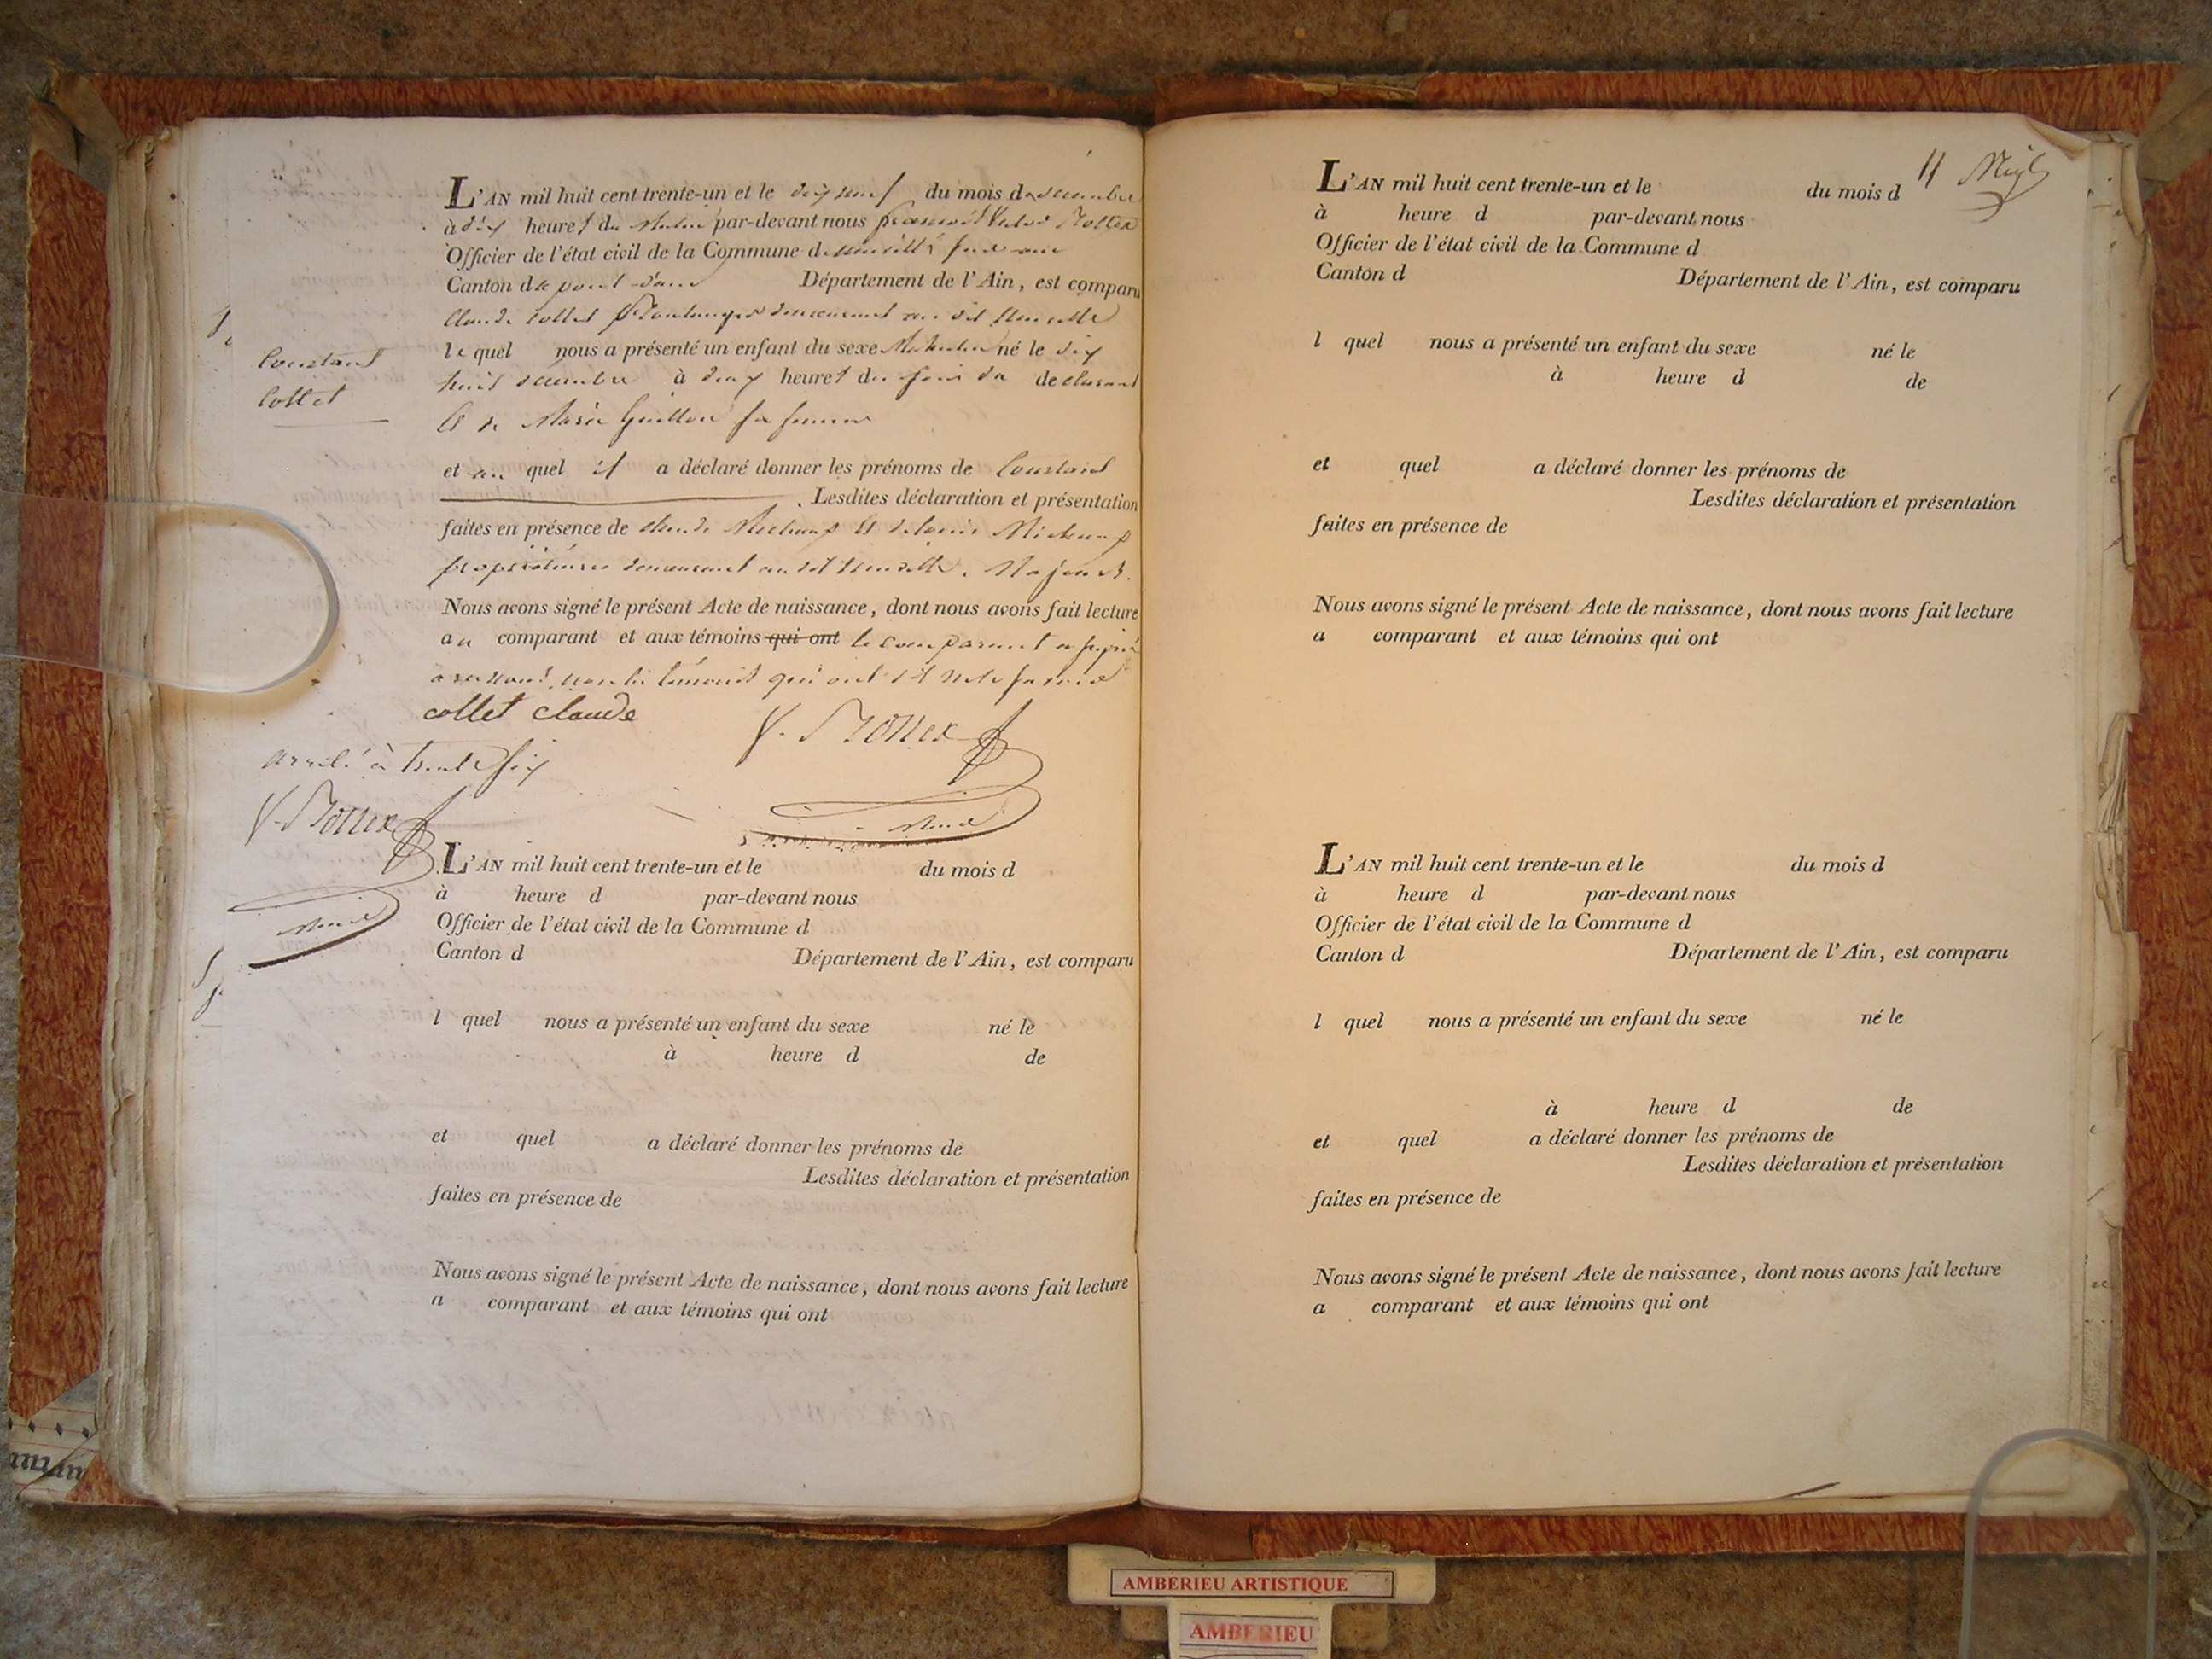 L'AN mil huit cent trente-un et le dix neuf du mois de décembre
à dix heures du Matin par-devant nous françois Victor Bottex
Officier de l'état civil de la Commune de neuville sur ain
Canton de pont d'ain Département de l'Ain, est comparu
Claude Collet Boulanger demeurant au dit Neuville
le quel nous a présenté un enfant du sexe Masculin né le dix
huit décembre à deux heures du soir du declarant
Et de Marie Guillon sa femme
et au quel il a déclaré donner les prénoms de Constant
Lesdites déclaration et présentation
faites en présence de claude et de louis
propriétaires demeurant au dit Neuville. Majeurs.
Nous avons signé le présent Acte de naissance, dont nous avons fait lecture
au comparant et aux témoins qui ont le comparant a signé
avec nous, non les témoins qui ont dit ne le savoir
collet claude
V. Bottex
Constant
Collet
arrêté à trente six
V. Bottex
L'AN mil huit cent trente-un et le du mois d
à heure d par-devant nous
Officier de l'état civil de la Commune d
Canton d Département de l'Ain, est comparu
l quel nous a présenté un enfant du sexe né le
à heure d de
et quel a déclaré donner les prénoms de
Lesdites déclaration et présentation
faites en présence de
Nous avons signé le présent Acte de naissance, dont nous avons fait lecture
a comparant et aux témoins qui ont
11
L'AN mil huit cent trente-un et le du mois d
à heure d par-devant nous
Officier de l'état civil de la Commune d
Canton d Département de l'Ain, est comparu
l quel nous a présenté un enfant du sexe né le
à heure d de
et quel a déclaré donner les prénoms de
Lesdites déclaration et présentation
faites en présence de
Nous avons signé le présent Acte de naissance, dont nous avons fait lecture
a comparant et aux témoins qui ont
L'AN mil huit cent trente-un et le du mois d
à heure d par-devant nous
Officier de l'état civil de la Commune d
Canton d Département de l'Ain, est comparu
l quel nous a présenté un enfant du sexe né le
à heure d de
et quel a déclaré donner les prénoms de
Lesdites déclaration et présentation
faites en présence de
Nous avons signé le présent Acte de naissance, dont nous avons fait lecture
a comparant et aux témoins qui ont
AMBERIEU ARTISTIQUE
AMBERIEU